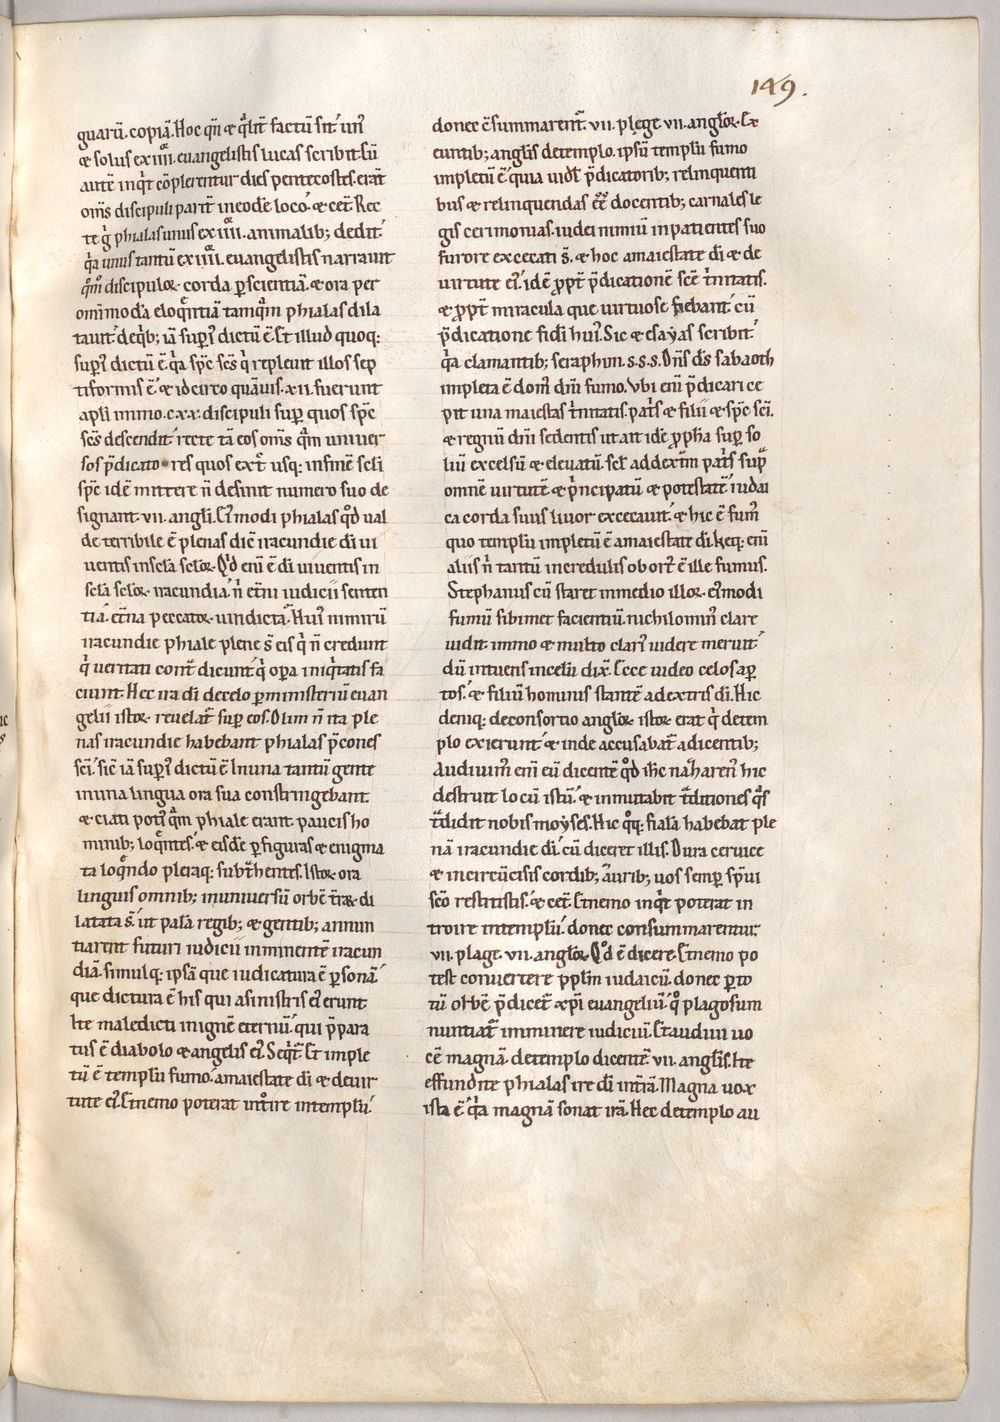 149.
guarū. copiā. Hoc qn̄ ⁊ qͥlit̄ factū sit. un᷒
⁊ solus ex iiii. euangelistis lucas scribit. Cū
autē inqͥt cōplerentur dies pentecostes. erāt
om̄s discipuli parit̄ in eodē loco. ⁊ cet̄. Rec
te g̊ phialas unus ex iiii. animalib; dedit.
qͥa unus tantū ex iiii. euangelistis narrauit
qm̊ discipuloꝝ corda ꝑ scientiā. ⁊ ora per
omīmodā eloqn̄tiā tamqͣm phialas dila
tauit. de qͥb; iā suꝑi᷒ dictū ē. Et illud quoq;
suꝑi᷒ dictū ē. qͥa sp̄c sc̄s qͥ repleuit illos sep
tiformis ē. ⁊ idcirco quāuis xii. fuerunt
apl̄i immo. c.xx. discipuli suꝑ quos sp̄c
sc̄s descendit. recte tā eos om̄s qͣm uniuer
sos p̄dicatores quos ext̄ usq; in finē scl̄i
sp̄c idē mittere n̄ desinit numero suo de
signant. vii. angl̄i. Ei᷒modi phialas qͦd ual
de terribile ē plenas dic̄ iracundie dī ui
uentis in scl̄a scl̄oꝝ. Qͥd enī ē dī uiuentis in
scl̄a scl̄oꝝ iracundia. n̄ et̄ni iudicii senten
tiā. et̄na peccatoꝝ uindicta. Hui᷒ nimirū
iracundie phiale plene s̄ eis qͥ n̄ credunt
qͥ ueritati cont̄ dicunt. qͥ oꝑa iniqͥtatis fa
ciunt. Hec ira dī de celo ꝑ ministeriū euan
gelii istoꝝ reuelat̄ suꝑ eos. Olim n̄ ita ple
nas iracundie habebant phialas p̄cones
sc̄i. sic̄ iā suꝑi᷒ dictū ē. In una tantū gente
in una lingua ora sua constringebant.
⁊ ciati poti᷒ qͣm phiale erant. paucis ho
minib; loqn̄tes. ⁊ eisdē ꝑ figuras ⁊ enigma
ta loqn̄do pleraq; subt̄hentes. Istoꝝ ora
linguis omnib; in uniuersū orbē t̄raꝝ di
latata s̄. ut palā regib; ⁊ gentib; annun
tiarent futuri iudicii imminentē iracun
diā. simulq; ipsā que iudicatura ē ꝑsonā.
que dictura ē his qui a sinistris ei᷒ erunt
Ite maledicti in ignē eternū. qui p̄para
tus ē diabolo ⁊ angelis ei᷒. Seqͥt̄. Et imple
tū ē templū fumo. a maiestate dī ⁊ de uir
tute ei᷒. Et nemo poterat int̊ire in templū.
donec c̄summarent̄. vii. plage vii. angl̄oꝝ. Ex
euntib; angl̄is de templo. ipsū templū fumo
impletū ē. quia uidl̄ p̄dicatorib; relinquenti
bus ⁊ relinquendas eē docentib; carnales le
gis cerimonias. iudei nimiū inpatientes suo
furore excecati s̄. ⁊ hoc a maiestate dī ⁊ de
uirtute ei᷒. id ē ꝓpt̄ p̄dicationē sc̄e t̄nitatis.
⁊ ꝓpt̄ miracula que uirtuose fiebant. cū
p̄dicatione fidi hui᷒. Sic ⁊ esayas scribit.
qͥa clamantib; seraphin. s.s.s. Dn̄s ds̄ sabaoth
impleta ē dom᷒ dn̄i fumo. Vbi enī p̄dicari ce
pit una maiestas t̄nitatis. pat̄s ⁊ filii ⁊ sp̄c sc̄i.
⁊ regnū dn̄i sedentis ut ait idē ꝓph̄a suꝑ so
liū excelsū ⁊ eleuatū. scl̄ ad dext̄m pat̄s suꝑ
omnē uirtutē ⁊ p̄ncipatū ⁊ potestatē. iudai
ca corda suus liuor excecauit. ⁊ hic ē fum᷒
quo templū impletū ē a maiestate dī. Neq; enī
aliis n̄ tantū incredulis obort᷒ ē ille fumus.
Stephanus cū staret in medio illoꝝ. ei᷒modi
fumū sibimet facientiū. nichilomin᷒ clare
uidit. immo ⁊ multo clari᷒ uidere meruit.
dū intuens in celū dix̄. Ecce uideo celos aꝑ
tos. ⁊ filiū hominis stantē a dextris dī. Hic
deniq; de consortio angl̄oꝝ istoꝝ erat qͥ de tem
plo exierunt. ⁊ inde accusabat̄ a dicentib;
Audiuim᷒ enī eū dicentē qͦd ih̄c nazaren᷒ hic
destruit locū istū. ⁊ inmutabit t̄ditiones qͣs
t̄didit nobis moyses. Hic qͦq; fialā habebat ple
nā iracundie dī. cū diceret illis. Dura ceruice
⁊ incircūcisis cordib; ⁊ aurib; uos semꝑ sp̄ui
sc̄o restitistis. ⁊ cet̄. Et nemo inqͥt poterat in
troire in templū. donec consummarentur
vii. plage. vii. angl̄oꝝ. Qͥd ē dicere. Et nemo po
test conuertere ppl̄m iudaicū. donec ꝑ to
tū orbē p̄dicet̄ xp̄i euangeliū. qͦ plagosum
nuntiat̄ imminere iudiciū. Et audiui uo
cē magnā de templo dicentē. vii. angl̄is. Ite
effundite phialas ire dī in t̄rā. Magna uox
ista ē. qͥa magnā sonat irā. Hec de templo au